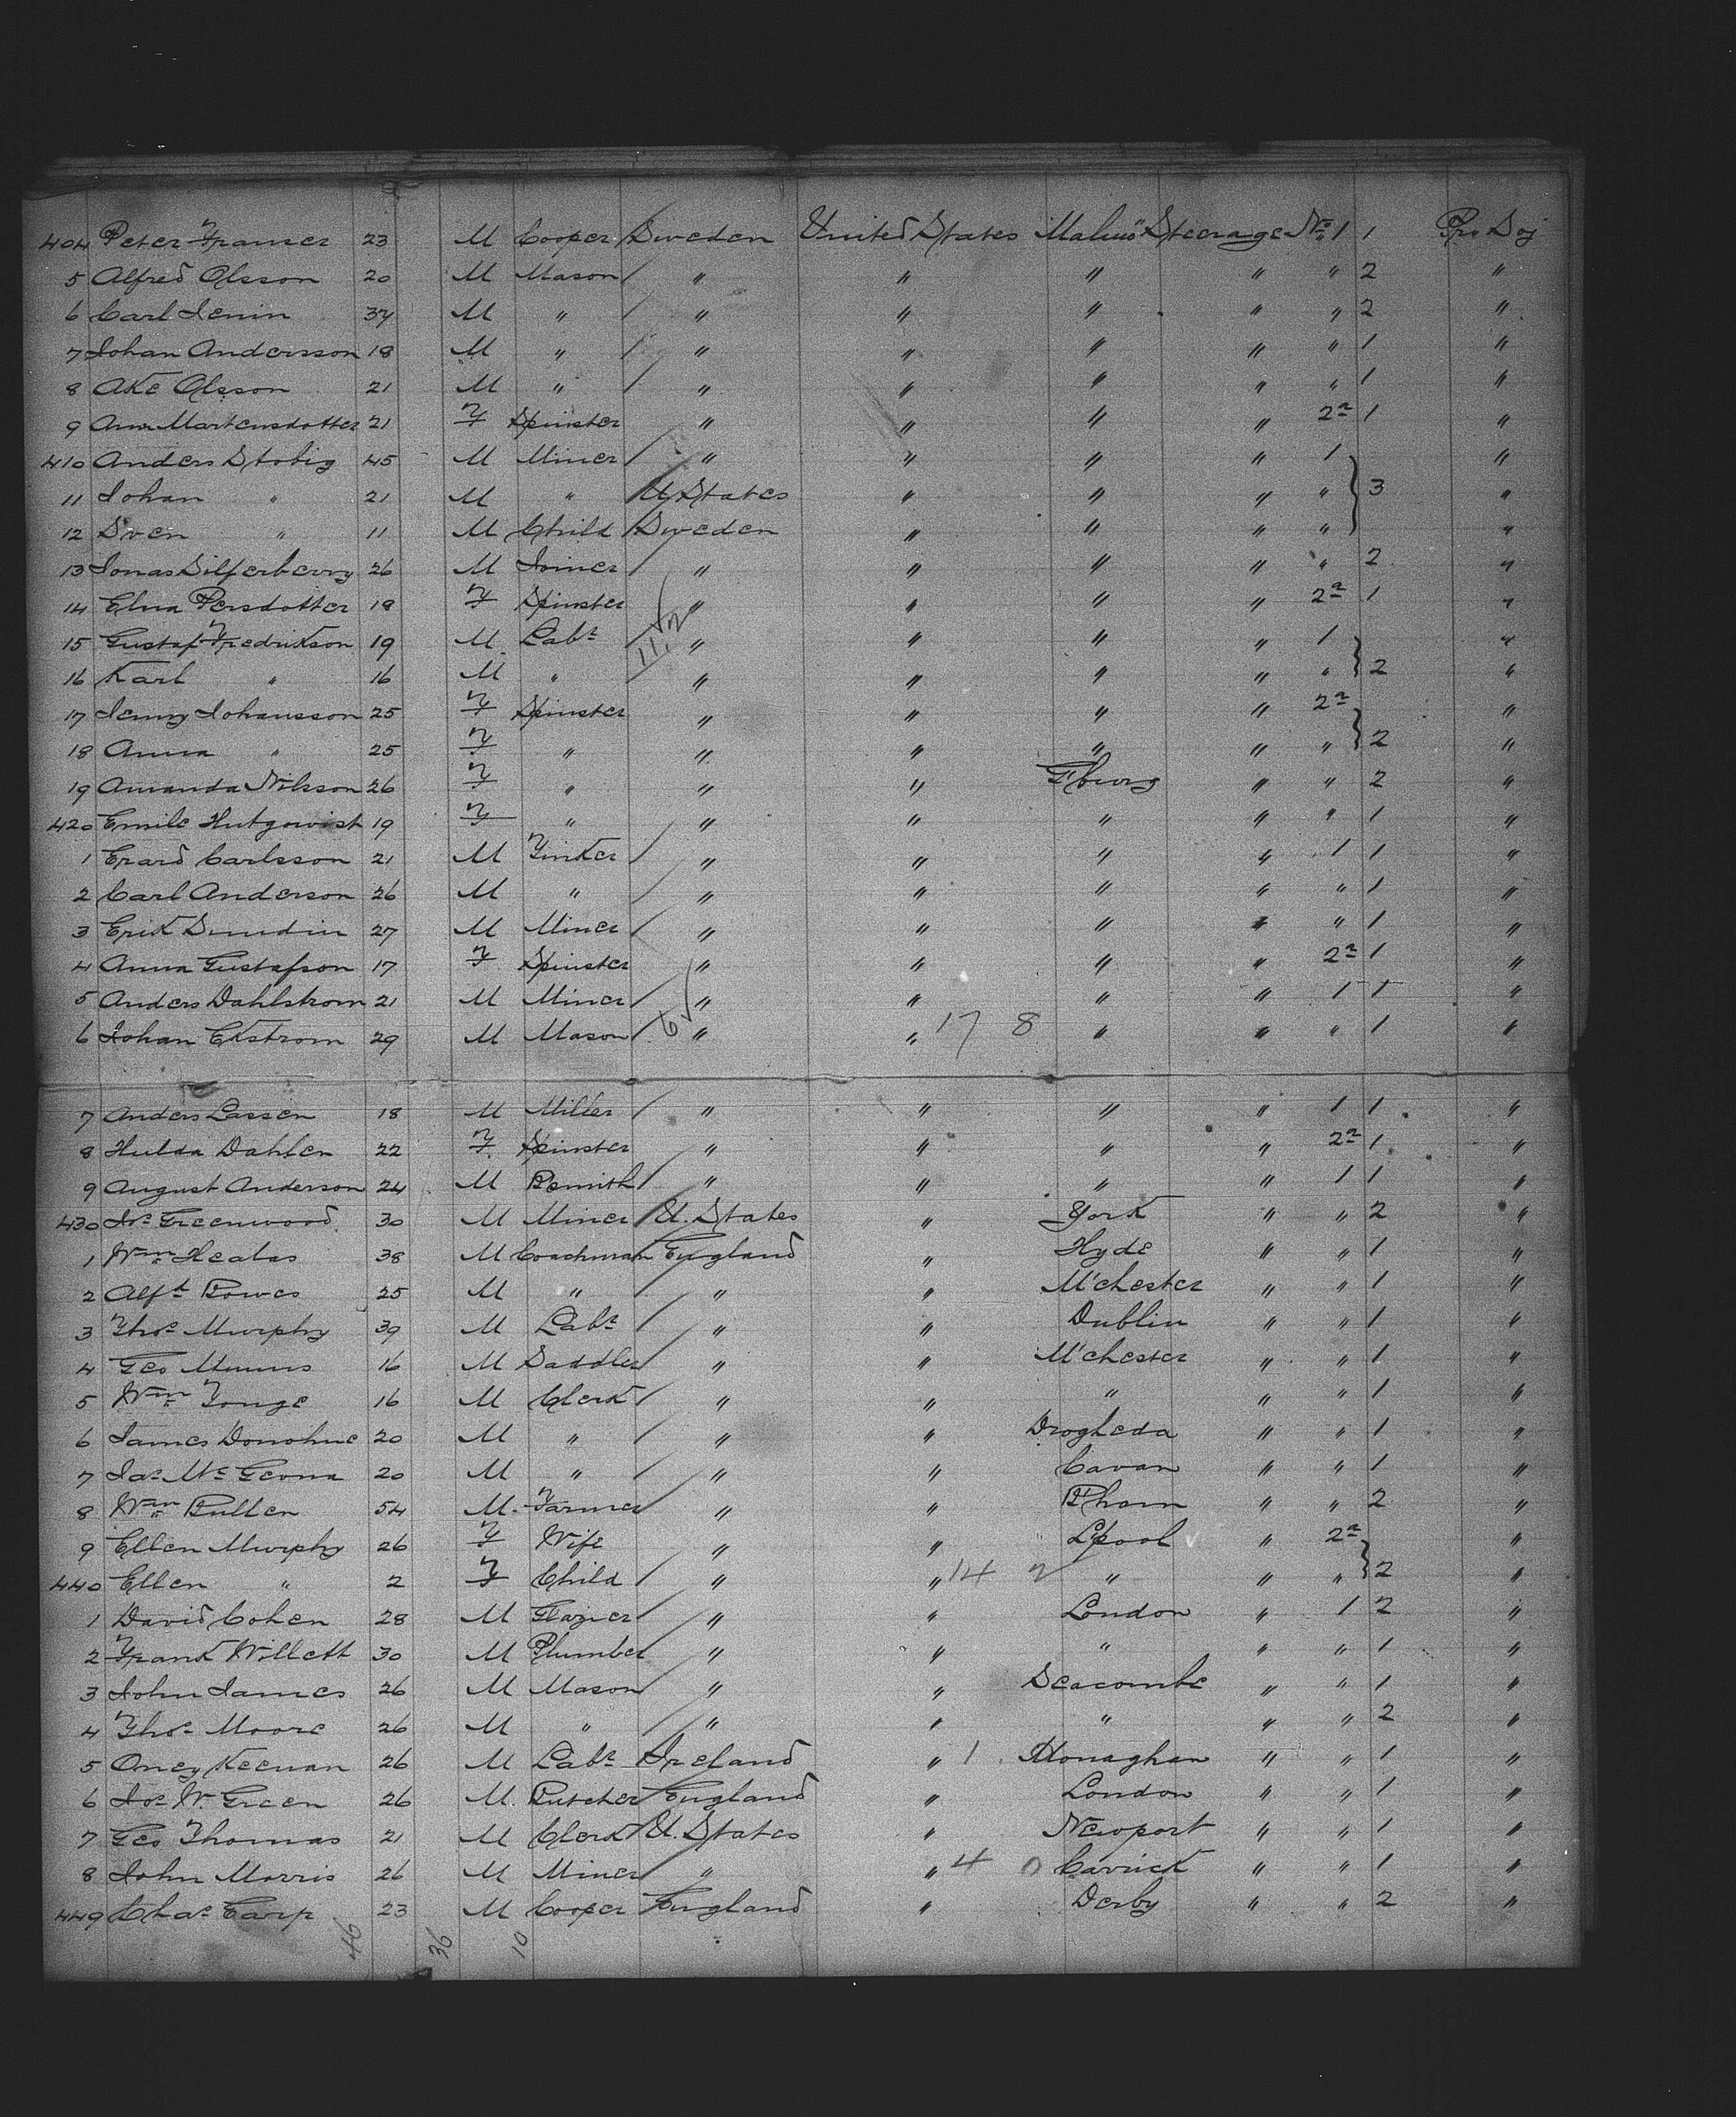 404 Peter Framer 23 M Cooper Sweden United States Malmö Steerage No 1 1 Pro Soj
5 Alfred Olsson 20 M Mason / " " " " " 2 "
6 Carl Lenin 37 M " / " " " " " 2 "
7 Johan Andersson 18 M " / " " " " " 1 "
8 Ake Olsson 21 M " / " " " " " 1 "
9 Ann Martensdotter 21 F Spinster " " " " 2a 1 "
410 Anders Stobig 45 M Miner / " " " " 1 "
11 Johan " 21 M " / U States " " " " } 3 "
12 Sven " 11 M Child / Sweden " " " " "
13 Jonas Silferberry 26 M Joiner / " " " " " 2 "
14 Elna Persdotter 18 F Spinster " " " " 2a 1 "
15 Gustaf Fredrikson 19 M Labr / 11.2 " " " " 1 "
16 Karl " 16 M " " " " " " } 2 "
17 Jenny Johansson 25 F Spinster " " " " 2a "
18 Anna " 25 F " " " " " " } 2 "
19 Amanda Nilsson 26 F " " " G'burg " " 2 "
420 Emile Hutgovist 19 F " " " " " " 1 "
1 Erard Carlsson 21 M Tinker / " " " " 1 1 "
2 Carl Anderson 26 M " / " " " " " 1 "
3 Erik Sundin 27 M Miner / " " " " " 1 "
4 Anna Gustafson 17 F Spinster " " " " 2a 1 "
5 Anders Dahlstrom 21 M Miner / " " " " 1 1 "
6 Johan Ekstrom 29 M Mason / 6 " " 17 8 " " " 1 "
7 Anders Lassen 18 M Miller / " " " " 1 1 "
8 Hulda Dahlen 22 F Spinster " " " " 2a 1 "
9 August Anderson 24 M Bsmith / " " " " 1 1 "
430 Jos Greenwood 30 M Miner / U. States " York " " 2 "
1 Wm Heabas 38 M Coachman England " Hyde " " 1 "
2 Alfd Bowes 25 M " / " " M'chester " " 1 "
3 Thos Murphy 39 M Labr / " " Dublin " " 1 "
4 Geo Munns 16 M Saddler / " " M'chester " " 1 "
5 Wm Tonge 16 M Clerk / " " " " " 1 "
6 James Donohue 20 M " / " " Drogheda " " 1 "
7 Jas Mc Geona 20 M " / " " Cavan " " 1 "
8 Wm Bullen 54 M Farmer / " " B'ham " " 2 "
9 Ellen Murphy 26 F Wife " " L'pool " 2a "
440 Ellen " 2 F Child / " " 14 2 " " " } 2 "
1 David Cohen 28 M Glazier / " " London " 1 2 "
2 Frank Willett 30 M Plumber / " " " " " 1 "
3 John James 26 M Mason / " " Seacombe " " 1 "
4 Thos Moore 26 M " / " " " " " 2 "
5 Oney Keenan 26 M Labr Ireland " 1 Monaghan " " 1 "
6 Jos W. Green 26 M Butcher England " London " " 1 "
7 Geo Thomas 21 M Clerk / U. States " Newport " " 1 "
8 John Morris 26 M Miner / " " 4 0 Carrick " " 1 "
449 Chas Earp 23 M Cooper England " Derby " " 2 "
46 36 10